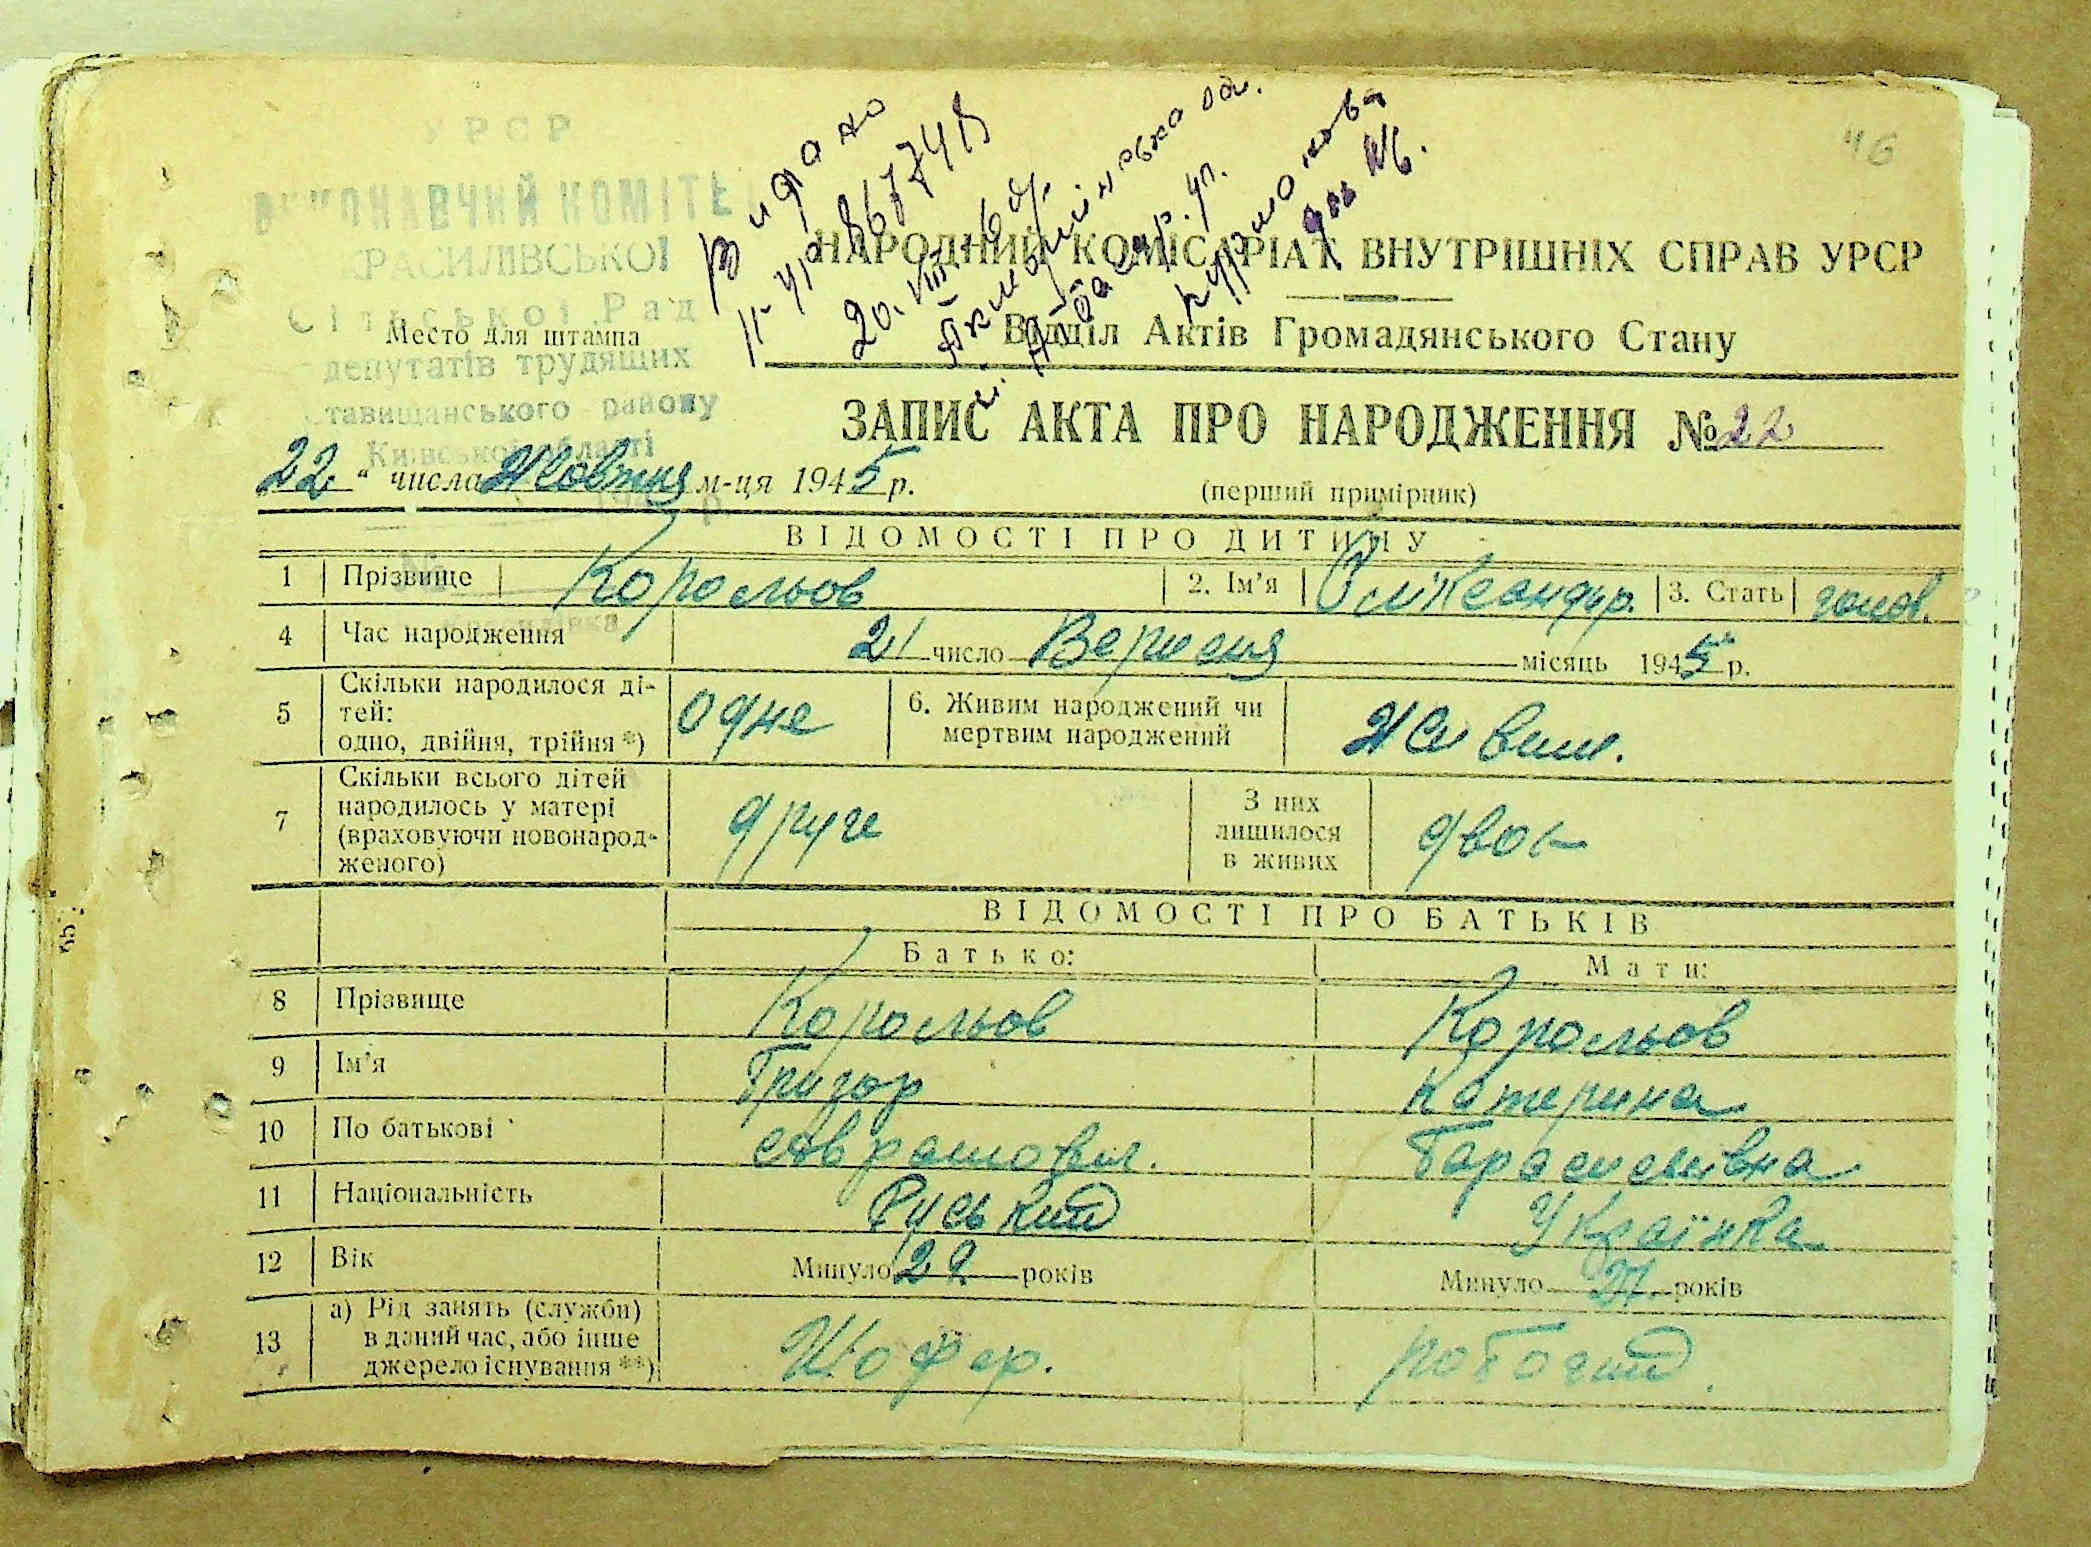 46
Видано
УРСР
ВИКОНАВЧИЙ КОМІТЕТ
КРАСИЛІВСЬКОЇ
Сільської Рад
депутатів трудящих
Ставищанського району
Київської області
Место для штампа
НАРОДНИЙ КОМІСАРІАТ ВНУТРІШНІХ СПРАВ УРСР
Відділ Актів Громадянського Стану
ЗАПИС АКТА ПРО НАРОДЖЕННЯ № 22
22 " числа Жовтня м-ця 1945 р.
(перший примірник)
ВІДОМОСТІ ПРО ДИТИНУ
1 Прізвище Корольов 2. Ім'я Олександр. 3. Стать чолов.
4 Час народження 21 число Вересня місяць 1945 р.
5 Скільки народилося ді-
тей:
одно, двійня, трійня *) одне
6. Живим народжений чи
мертвим народжений Живим.
7 Скільки всього дітей
народилось у матері
(враховуючи новонарод-
женого) друге
З них
лишилося
в живих двоє
ВІДОМОСТІ ПРО БАТЬКІВ
Батько: Мати:
8 Прізвище Корольов Корольов
9 Ім'я Григор Катерина
10 По батькові Тарасівна
11 Національність Руський Українка
12 Вік Минуло 29 років Минуло 27 років
13 а) Рід занять (служби)
в даний час, або інше
джерело існування **) Шофер. робочий.